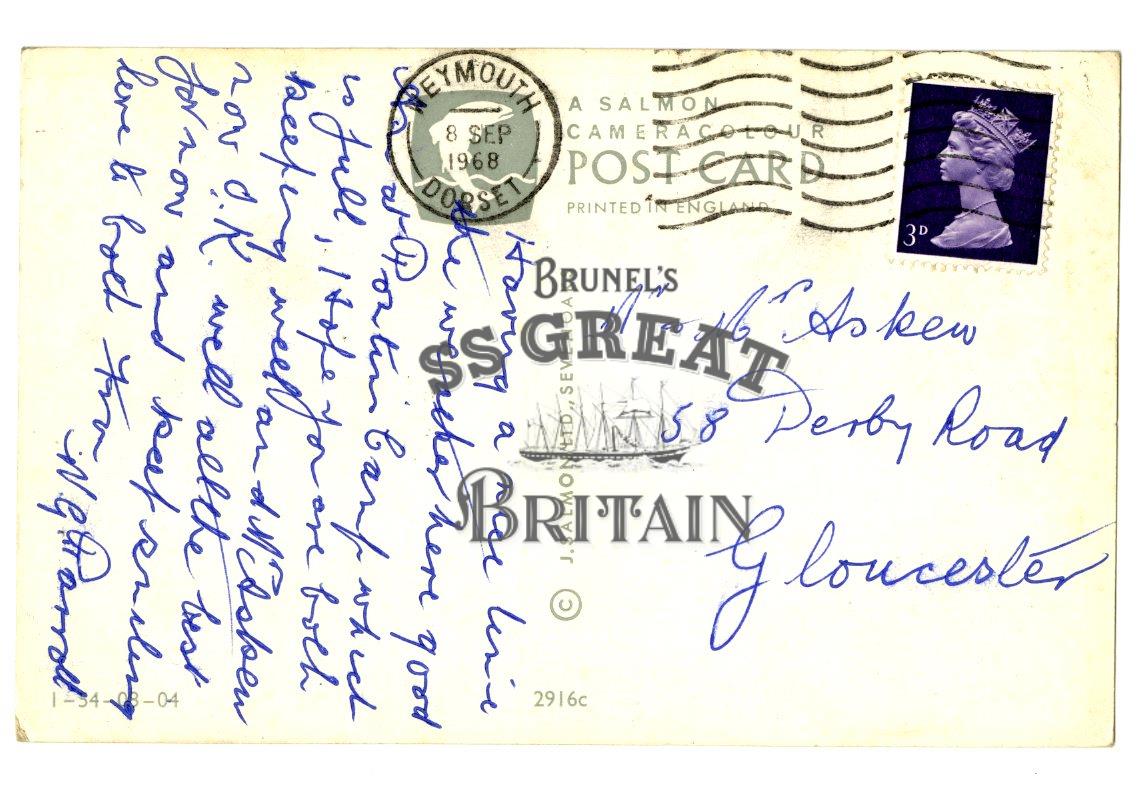 WEYMOUTH
8 SEP
1968
DORSET
A SALMON
CAMERACOLOUR
POST CARD
PRINTED IN ENGLAND
3D
BRUNEL'S
SS GREAT
BRITAIN
Having a nice time
the weather here good
is full, I Hope you are both
keeping well and Mr Askew
now O.K. well all the best
for now and keep smiling
love to both from
Mr Askew
58 Derby Road
Gloucester
© J. SALMON LTD., SEVENOA
1-54-08-04
2916c